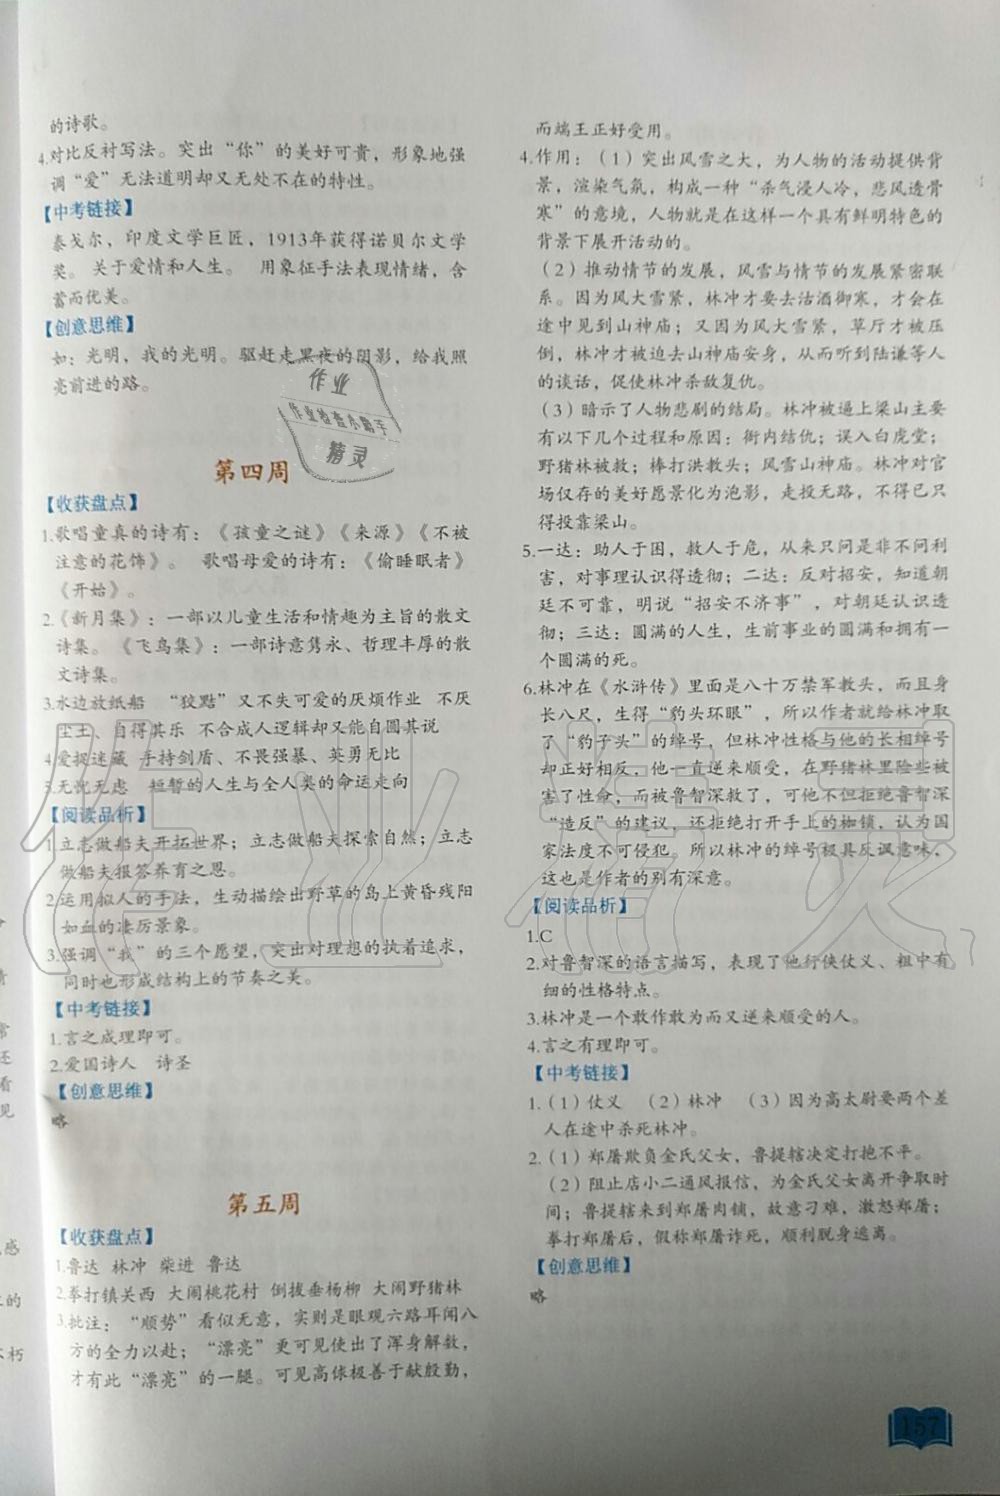 的诗歌。
4.对比反衬写法。突出“你”的美好可贵，形象地强
调“爱”无法道明却又无处不在的特性。
【中考链接】
泰戈尔，印度文学巨匠，1913年获得诺贝尔文学
奖。 关于爱情和人生。 用象征手法表现情绪，含
蓄而优美。
【创意思维】
如：光明，我的光明。驱赶走黑夜的阴影，给我照
亮前进的路。
作业
作业检查小助手
精灵
第四周
【收获盘点】
1.歌唱童真的诗有：《孩童之谜》《来源》《不被
注意的花饰》。 歌唱母爱的诗有：《偷睡眠者》
《开始》。
2.《新月集》：一部以儿童生活和情趣为主旨的散文
诗集。《飞鸟集》：一部诗意隽永、哲理丰厚的散
文诗集。
3.水边放纸船 “狡黠”又不失可爱的厌烦作业 不厌
尘土、自得其乐 不合成人逻辑却又能自圆其说
4.爱捉迷藏 手持剑盾、不畏强暴、英勇无比
5.无忧无虑 短暂的人生与全人类的命运走向
【阅读品析】
1.立志做船夫开拓世界；立志做船夫探索自然；立志
做船夫报答养育之恩。
2.运用拟人的手法，生动描绘出野草的岛上黄昏残阳
如血的凄厉景象。
3.强调“我”的三个愿望，突出对理想的执着追求，
同时也形成结构上的节奏之美。
【中考链接】
1.言之成理即可。
2.爱国诗人 诗圣
【创意思维】
略
第五周
【收获盘点】
1.鲁达 林冲 柴进 鲁达
2.拳打镇关西 大闹桃花村 倒拔垂杨柳 大闹野猪林
3.批注：“顺势”看似无意，实则是眼观六路耳闻八
方的全力以赴；“漂亮”更可见使出了浑身解数，
才有此“漂亮”的一腿。可见高俅极善于献殷勤，
而端王正好受用。
4.作用：（1）突出风雪之大，为人物的活动提供背
景，渲染气氛，构成一种“杀气浸人冷，悲风透骨
寒”的意境，人物就是在这样一个具有鲜明特色的
背景下展开活动的。
（2）推动情节的发展，风雪与情节的发展紧密联
系。因为风大雪紧，林冲才要去沽酒御寒，才会在
途中见到山神庙；又因为风大雪紧，草厅才被压
倒，林冲才被迫去山神庙安身，从而听到陆谦等人
的谈话，促使林冲杀敌复仇。
（3）暗示了人物悲剧的结局。林冲被逼上梁山主要
有以下几个过程和原因：衙内结仇；误入白虎堂；
野猪林被救；棒打洪教头；风雪山神庙。林冲对官
场仅存的美好愿景化为泡影，走投无路，不得已只
得投靠梁山。
5.一达：助人于困，救人于危，从来只问是非不问利
害，对事理认识得透彻；二达：反对招安，知道朝
廷不可靠，明说“招安不济事”，对朝廷认识透
彻；三达：圆满的人生，生前事业的圆满和拥有一
个圆满的死。
6.林冲在《水浒传》里面是八十万禁军教头，而且身
长八尺，生得“豹头环眼”，所以作者就给林冲取
了“豹子头”的绰号，但林冲性格与他的长相绰号
却正好相反，他一直逆来顺受，在野猪林里险些被
害了性命，而被鲁智深救了，可他不但拒绝鲁智深
“造反”的建议，还拒绝打开手上的枷锁，认为国
家法度不可侵犯。所以林冲的绰号极具反讽意味，
这也是作者的别有深意。
【阅读品析】
1.C
2.对鲁智深的语言描写，表现了他行侠仗义、粗中有
细的性格特点。
3.林冲是一个敢作敢为而又逆来顺受的人。
4.言之有理即可。
【中考链接】
1.（1）仗义 （2）林冲 （3）因为高太尉要两个差
人在途中杀死林冲。
2.（1）郑屠欺负金氏父女，鲁提辖决定打抱不平。
（2）阻止店小二通风报信，为金氏父女离开争取时
间；鲁提辖来到郑屠肉铺，故意刁难，激怒郑屠；
拳打郑屠后，假称郑屠诈死，顺利脱身逃离。
【创意思维】
略
157